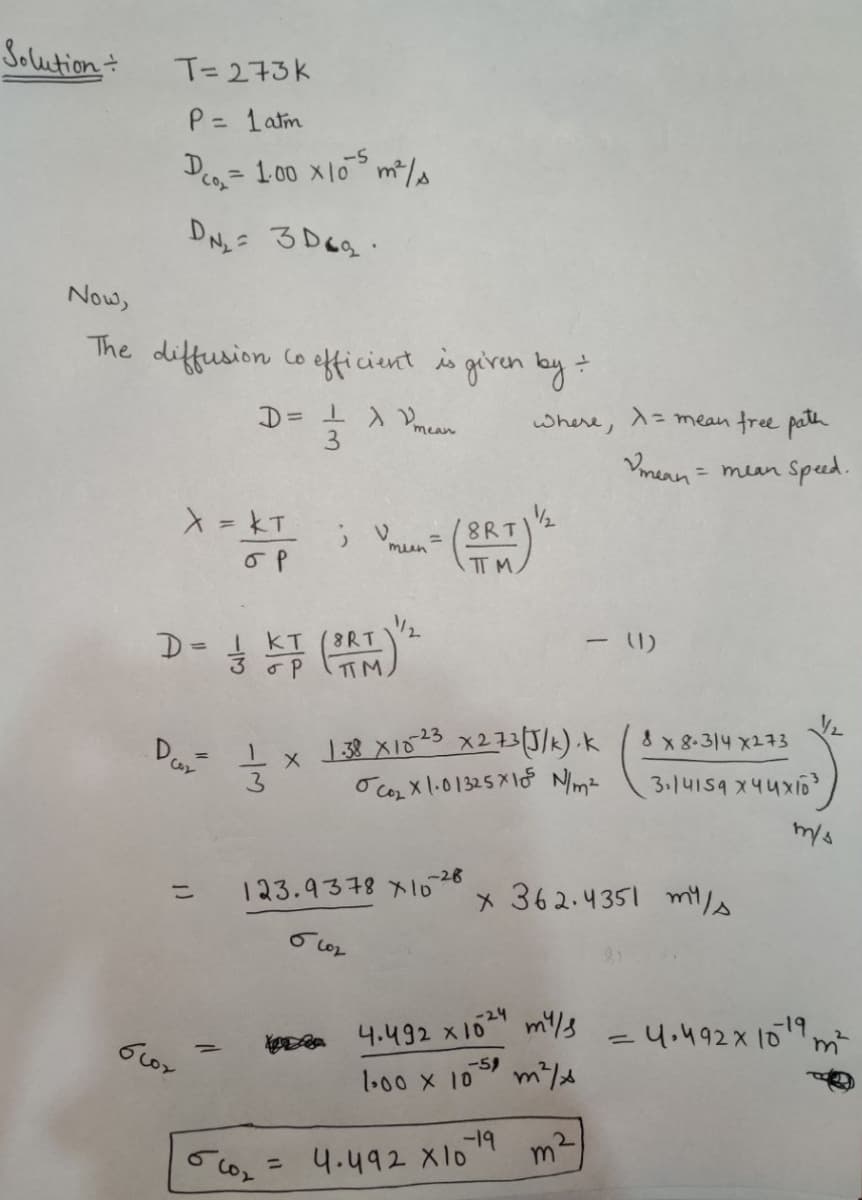 Solution ÷ T = 273K
P = 1 atm
D_CO₂ = 1.00 × 10⁻⁵ m²/s
D_N₂ = 3 D_CO₂ .
Now,
The diffusion coefficient is given by ÷
D = 1/3 λ ν_mean where, λ = mean free path
ν_mean = mean speed.
λ = kT/σP ; ν_mean = (8RT/πM)^1/2
D = 1/3 kT/σP (8RT/πM)^1/2 — (1)
D_CO₂ = 1/3 × 1.38 × 10⁻²³ × 273 (J/k).k / σ_CO₂ × 1.01325 × 10⁵ N/m² (8 × 8.314 × 273 / 3.14159 × 44 × 10⁻³)^1/2 m/s
= 123.9378 × 10⁻²⁸ / σ_CO₂ × 362.4351 m⁴/s
σ_CO₂ = 4.492 × 10⁻²⁴ m⁴/s / 1.00 × 10⁻⁵ m²/s = 4.492 × 10⁻¹⁹ m²
σ_CO₂ = 4.492 × 10⁻¹⁹ m²